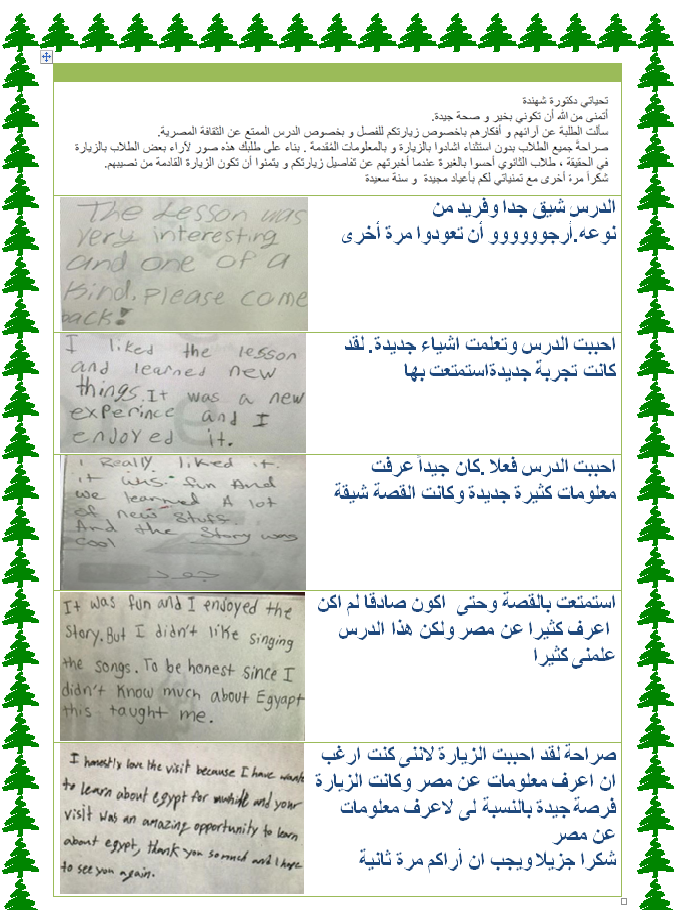 تحياتي دكتورة شهندة
أتمنى من الله أن تكوني بخير و صحة جيدة.
سألت الطلبة عن أرائهم و أفكارهم باخصوص زيارتكم للفصل و بخصوص الدرس الممتع عن الثقافة المصرية.
صراحةً جميع الطلاب بدون استثناء اشادوا بالزيارة و بالمعلومات المُقدمة . بناء على طلبك هذه صور لآراء بعض الطلاب بالزيارة
في الحقيقة ، طلاب الثانوي أحسوا بالغيرة عندما أخبرتهم عن تفاصيل زيارتكم و يتمنوا أن تكون الزيارة القادمة من نصيبهم.
شكراً مرة أخرى مع تمنياتي لكم بأعياد مجيدة و سنة سعيدة
الدرس شيق جدا وفريد من
نوعه.أرجووووووو أن تعودوا مرة أخرى
The Lesson was
very interesting
and one of a
kind. Please come
back!
احببت الدرس وتعلمت اشياء جديدة. لقد
كانت تجربة جديدةاستمتعت بها
I liked the lesson
and learned new
things. It was a new
experince and I
enjoyed it.
احببت الدرس فعلا .كان جيداً عرفت
معلومات كثيرة جديدة وكانت القصة شيقة
I Really liked it.
it was fun And
we learned A lot
of new stuff.
And the Story was
cool
جود
استمتعت بالقصة وحتي اكون صادقا لم اكن
اعرف كثيرا عن مصر ولكن هذا الدرس
علمني كثيرا
It was fun and I enjoyed the
story. But I didn't like singing
the songs. To be honest since I
didn't know much about Egyapt
this taught me.
صراحة لقد احببت الزيارة لانني كنت ارغب
ان اعرف معلومات عن مصر وكانت الزيارة
فرصة جيدة بالنسبة لى لاعرف معلومات
عن مصر
شكرا جزيلا ويجب ان أراكم مرة ثانية
I honestly love the visit because I have wante
to learn about egypt for and your
visit was an amazing opportunity to learn
about egypt, thank you so much and I hope
to see you again.